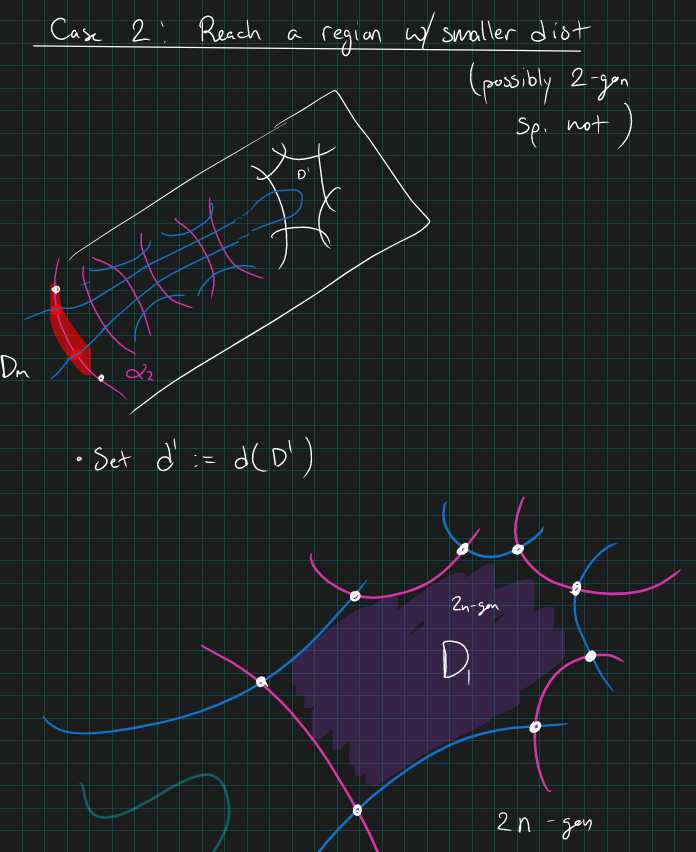 Case 2: Reach a region w/ smaller dist
(possibly 2-gon
sp. not)
D'
Dm
α2
• Set d' := d(D')
2n-gon
D1
2n-gon